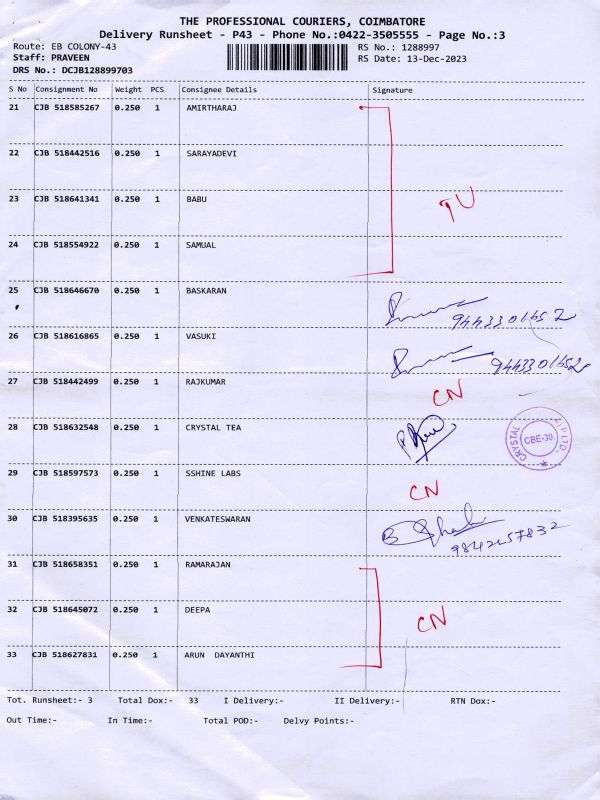 THE PROFESSIONAL COURIERS, COIMBATORE
Delivery Runsheet - P43 - Phone No.:0422-3505555 - Page No.:3
Route: EB COLONY-43 RS No.: 1288997
Staff: PRAVEEN RS Date: 13-Dec-2023
DRS No.: DCJB128899703
S No Consignment No Weight PCS Consignee Details Signature
21 CJB 518585267 0.250 1 AMIRTHARAJ
22 CJB 518442516 0.250 1 SARAYADEVI
23 CJB 518641341 0.250 1 BABU
TU
24 CJB 518554922 0.250 1 SAMUAL
25 CJB 518646670 0.250 1 BASKARAN
9443301652
26 CJB 518616865 0.250 1 VASUKI
9443301652
27 CJB 518442499 0.250 1 RAJKUMAR
CN
28 CJB 518632548 0.250 1 CRYSTAL TEA
CRYSTAL (P) LTD. CBE-30.
29 CJB 518597573 0.250 1 SSHINE LABS
CN
30 CJB 518395635 0.250 1 VENKATESWARAN
9842157832
31 CJB 518658351 0.250 1 RAMARAJAN
32 CJB 518645072 0.250 1 DEEPA
CN
33 CJB 518627831 0.250 1 ARUN DAYANTHI
Tot. Runsheet:- 3 Total Dox:- 33 I Delivery:- II Delivery:- RTN Dox:-
Out Time:- In Time:- Total POD:- Delvy Points:-